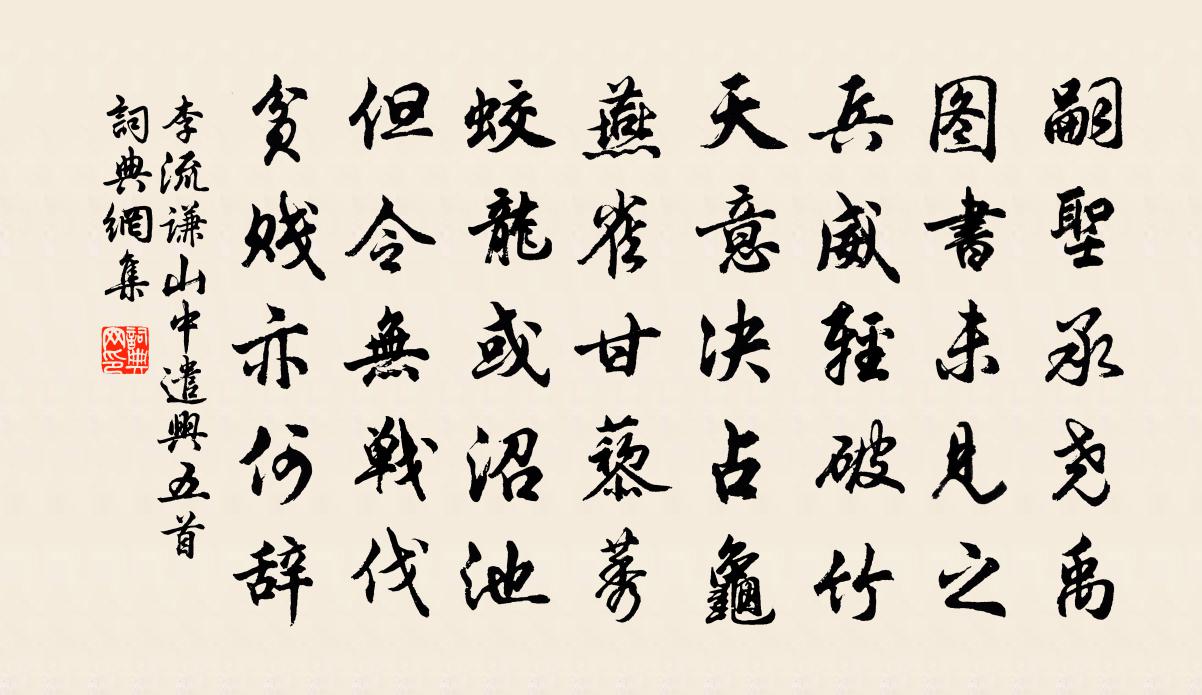 嗣聖承尧禹
图書未見之
兵威輕破竹
天意決占龜
燕雀甘藜莠
蛟龍或沼池
但令無戦伐
貧賤亦何辞
李流謙山中遣興五首
詞典網集
詞典网印